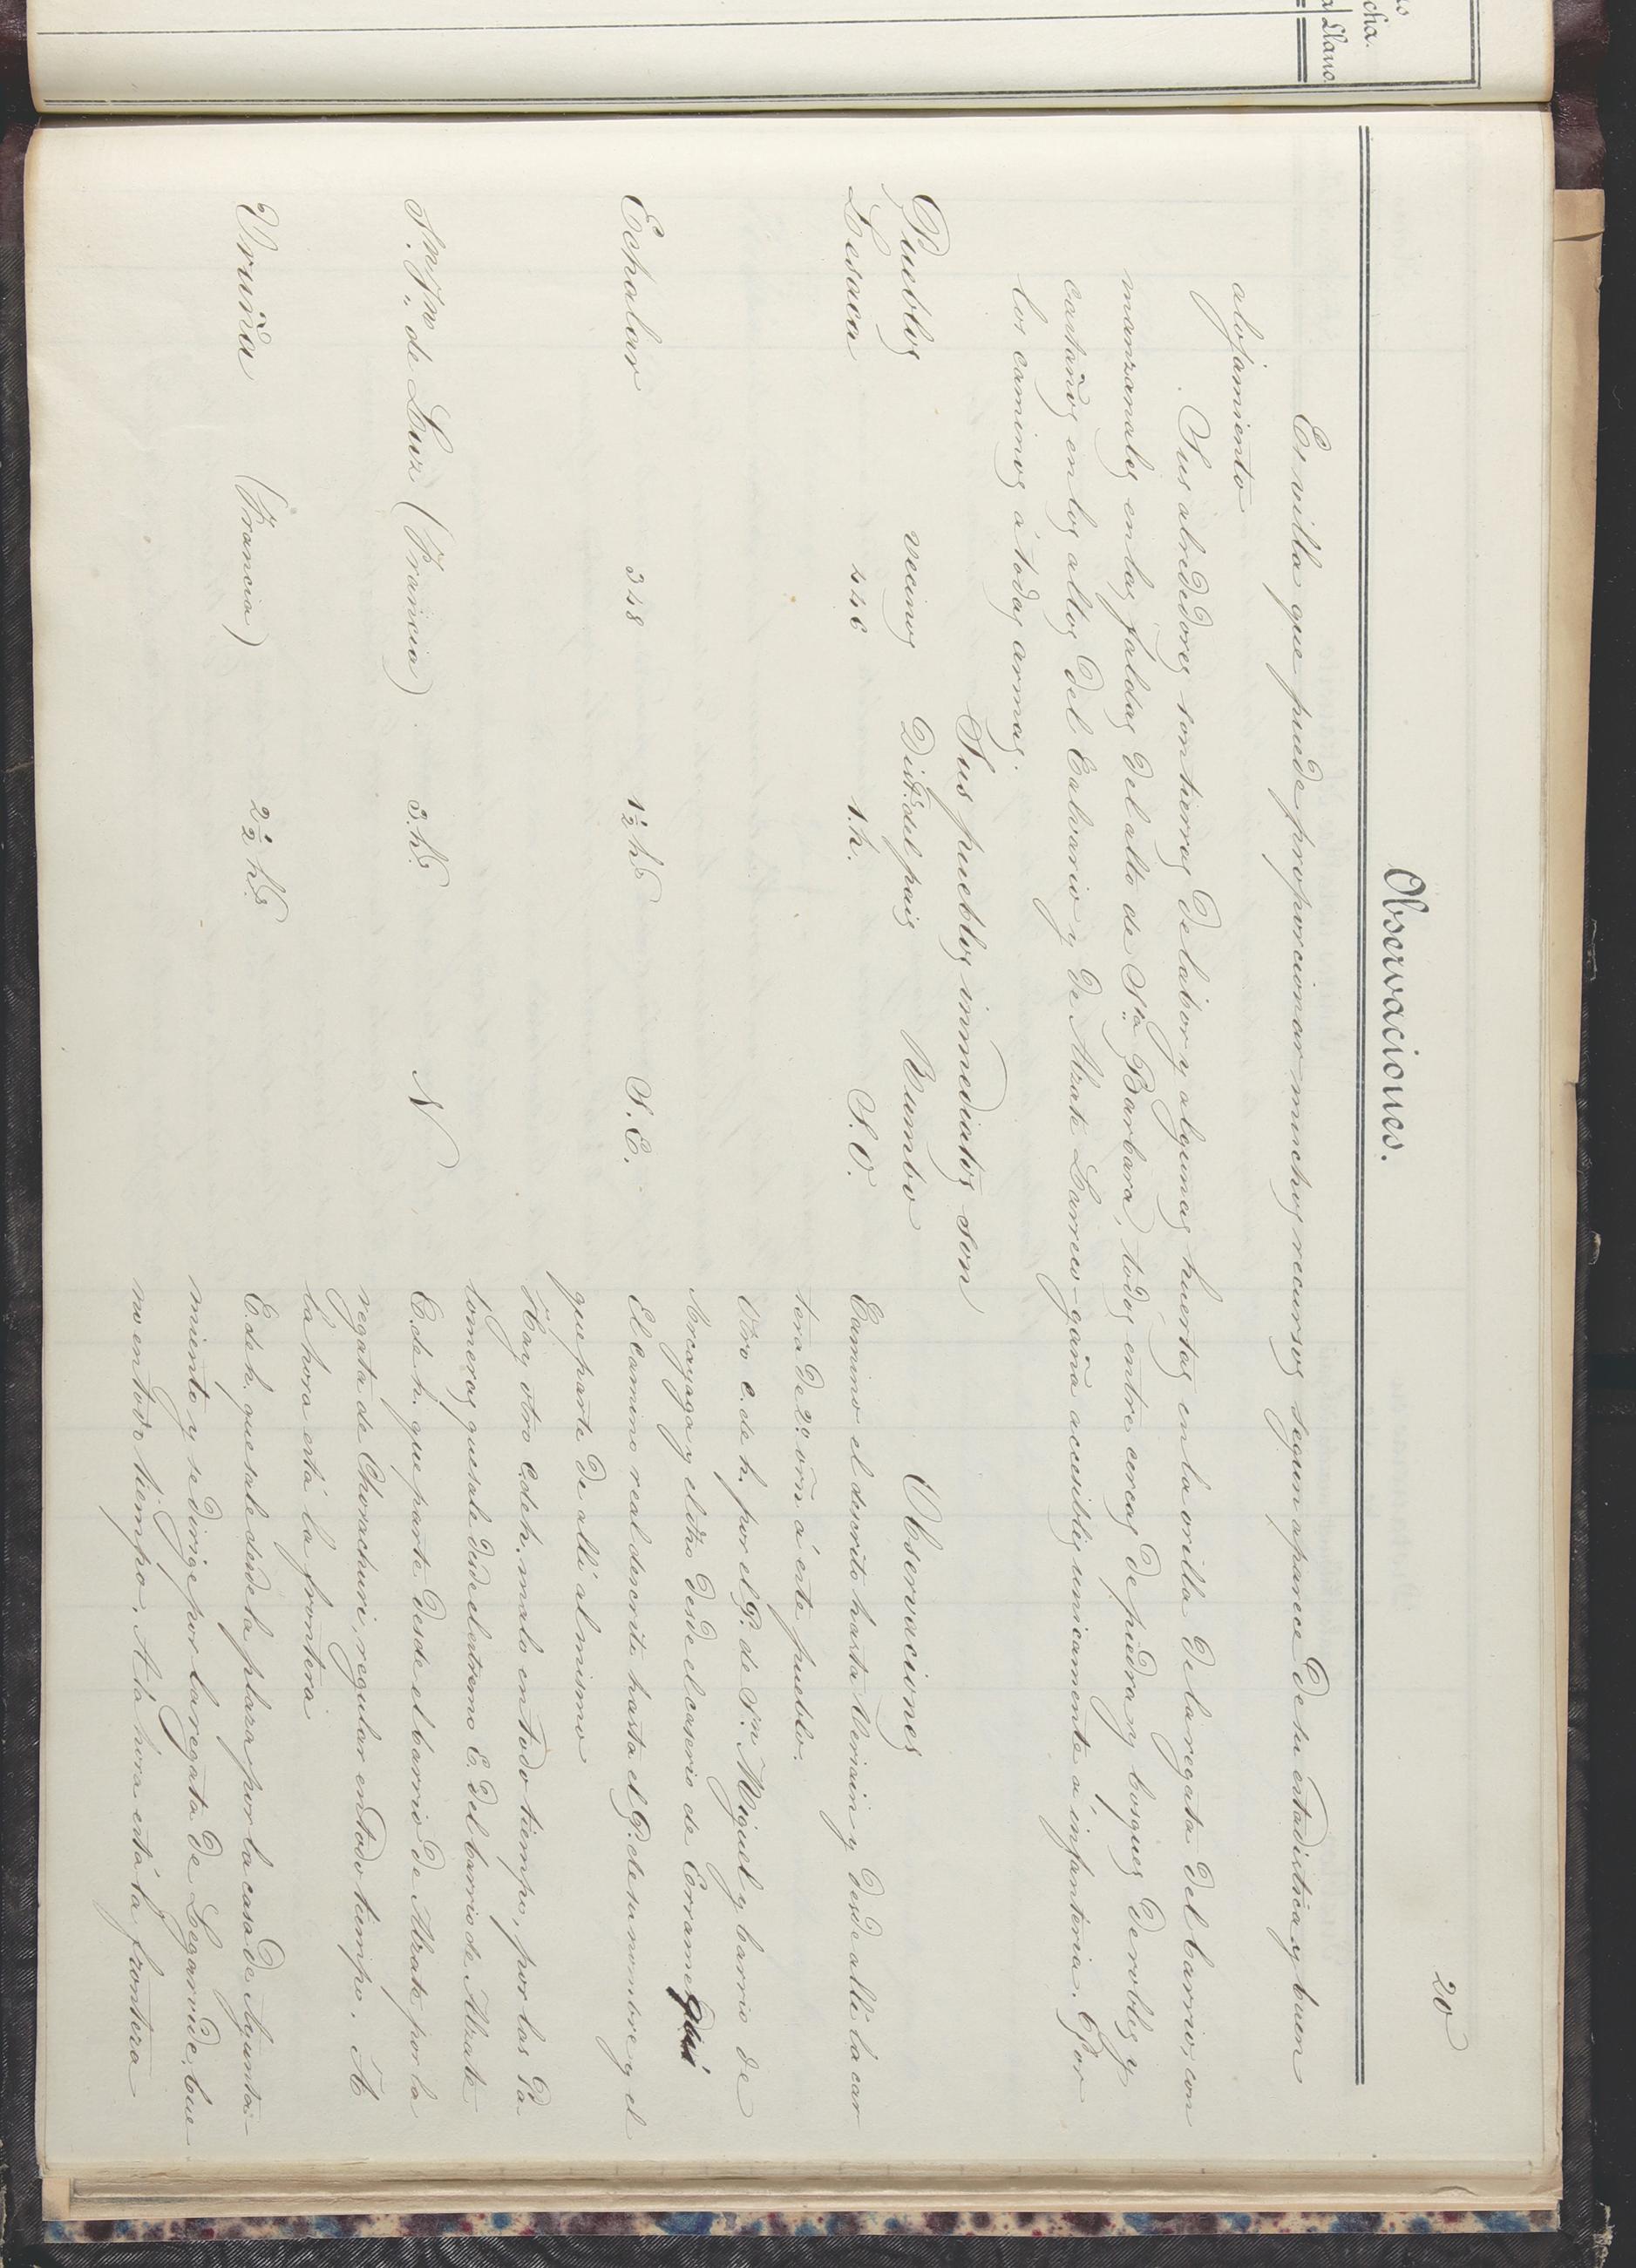 20
Observaciones.
Es villa que puede proporcionar muchos recursos segun aparece de su estadistica y buen
alojamiento
Sus alrededores son tierras de labor y algunas huertas en la orilla de la regata del barrio, con
manzanales en las faldas del alto de Sta. Barbara, todos entre cercas de piedra y bosques de robles y
castaños en los altos del Calvario y de Alzate Larreo-gaña accesibles unicamente á infanteria. Por
los caminos á todas armas.
Sus pueblos inmediatos son
Pueblos vecinos Dist.ª del pais Rumbo Observaciones
Lesaca 446 1.h. S.O. Camino el descrito hasta Vericin y desde alli la car
tera de 2.º orn á este pueblo.
Otro c. de h. por el P. de Sn. Miguel y barrio de
Arcayaga y el otro desde el caserio de
Echalar 348 1½ hs S.E. El camino real descrito hasta el P. de su nombre y el
que parte de alli al mismo
Hay otro c. de h. malo en todo tiempo, por las Pa
lomeras que sale desde el estremo E. del barrio de Alzate
Sn. Jn. de Luz (Francia) 3.hs N C. de h. que parte desde el barrio de Alzate por la
regata de Chorachuri, regular en todo tiempo. A
la hora está la frontera
Vruña (Francia) 2½ hs C. de h. que sale desde la plaza por la casa de Ayunta-
miento y se dirige por la regata de Legarude, bue
no en todo tiempo. A la hora está la frontera
cha.
Llano.